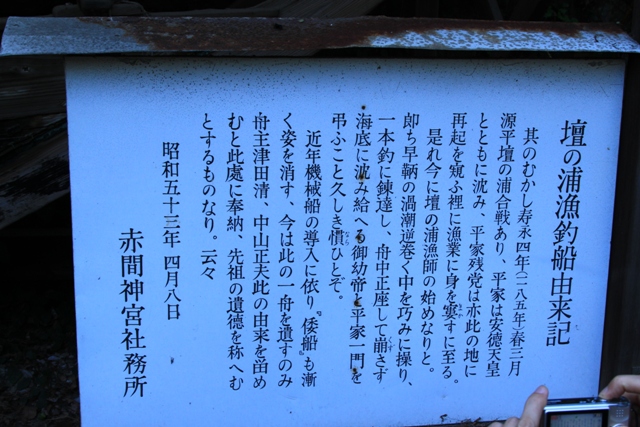 壇の浦漁釣船由来記
其のむかし寿永四年(一一八五年)春三月
源平壇の浦合戦あり、平家は安徳天皇
とともに沈み、平家残党は亦此の地に
再起を窺ふ裡に漁業に身を窶すに至る。
是れ今に壇の浦漁師の始めなりと。
即ち早鞆の渦潮逆巻く中を巧みに操り、
一本釣に錬達し、舟中正座して崩さず
海底に沈み給へる御幼帝と平家一門を
弔ふこと久しき慣ひとぞ。
近年機械船の導入に依り『倭船』も漸
く姿を消す、今は此の一舟を遺すのみ
舟主津田清、中山正夫此の由来を留め
むと此處に奉納、先祖の遺徳を称へむ
とするものなり。云々
昭和五十三年 四月八日
赤間神宮社務所